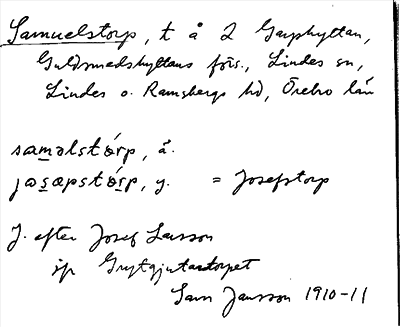 Samuelstorp, t å 2 Garphyttan,
Guldsmedshyttans förs., Lindes sn,
Lindes o. Ramsbergs hd, Örebro län
saməlstórp, ä.
jɷsəpstórp, y. = Josefstorp
J. efter Josef Larsson
i Grytgjutartorpet
Sam Jansson 1910-11